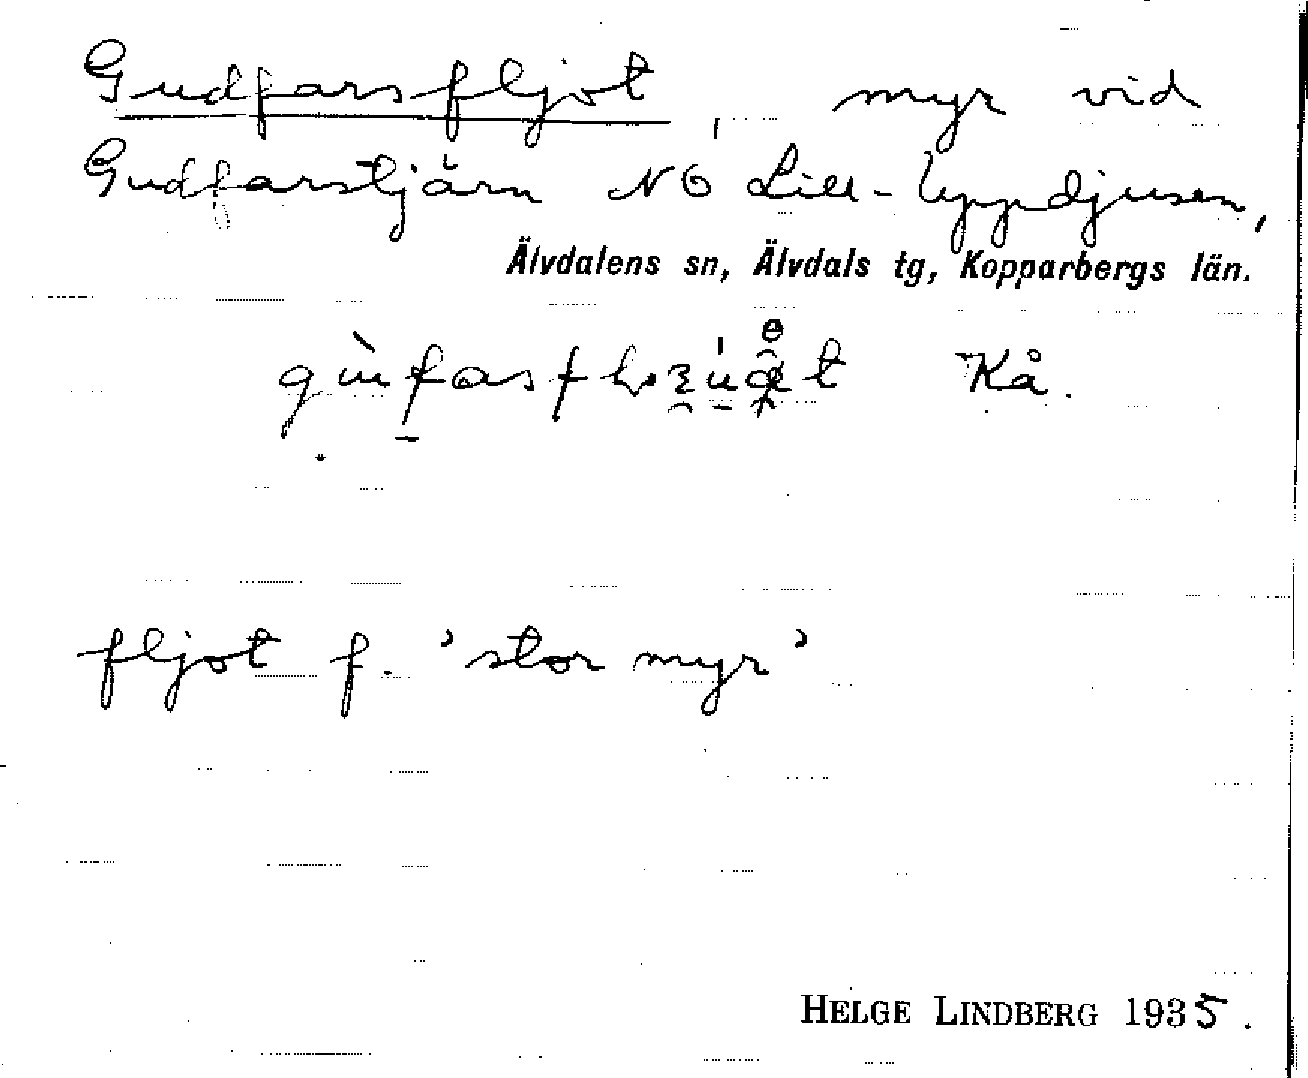 Gudfarsfljot, myr vid
Gudfarstjärn NO Lill-Uppdjusen,
Älvdalens sn, Älvdals tg, Kopparbergs län.
Kå.
fljot f. 'stor myr'
HELGE LINDBERG 1935.